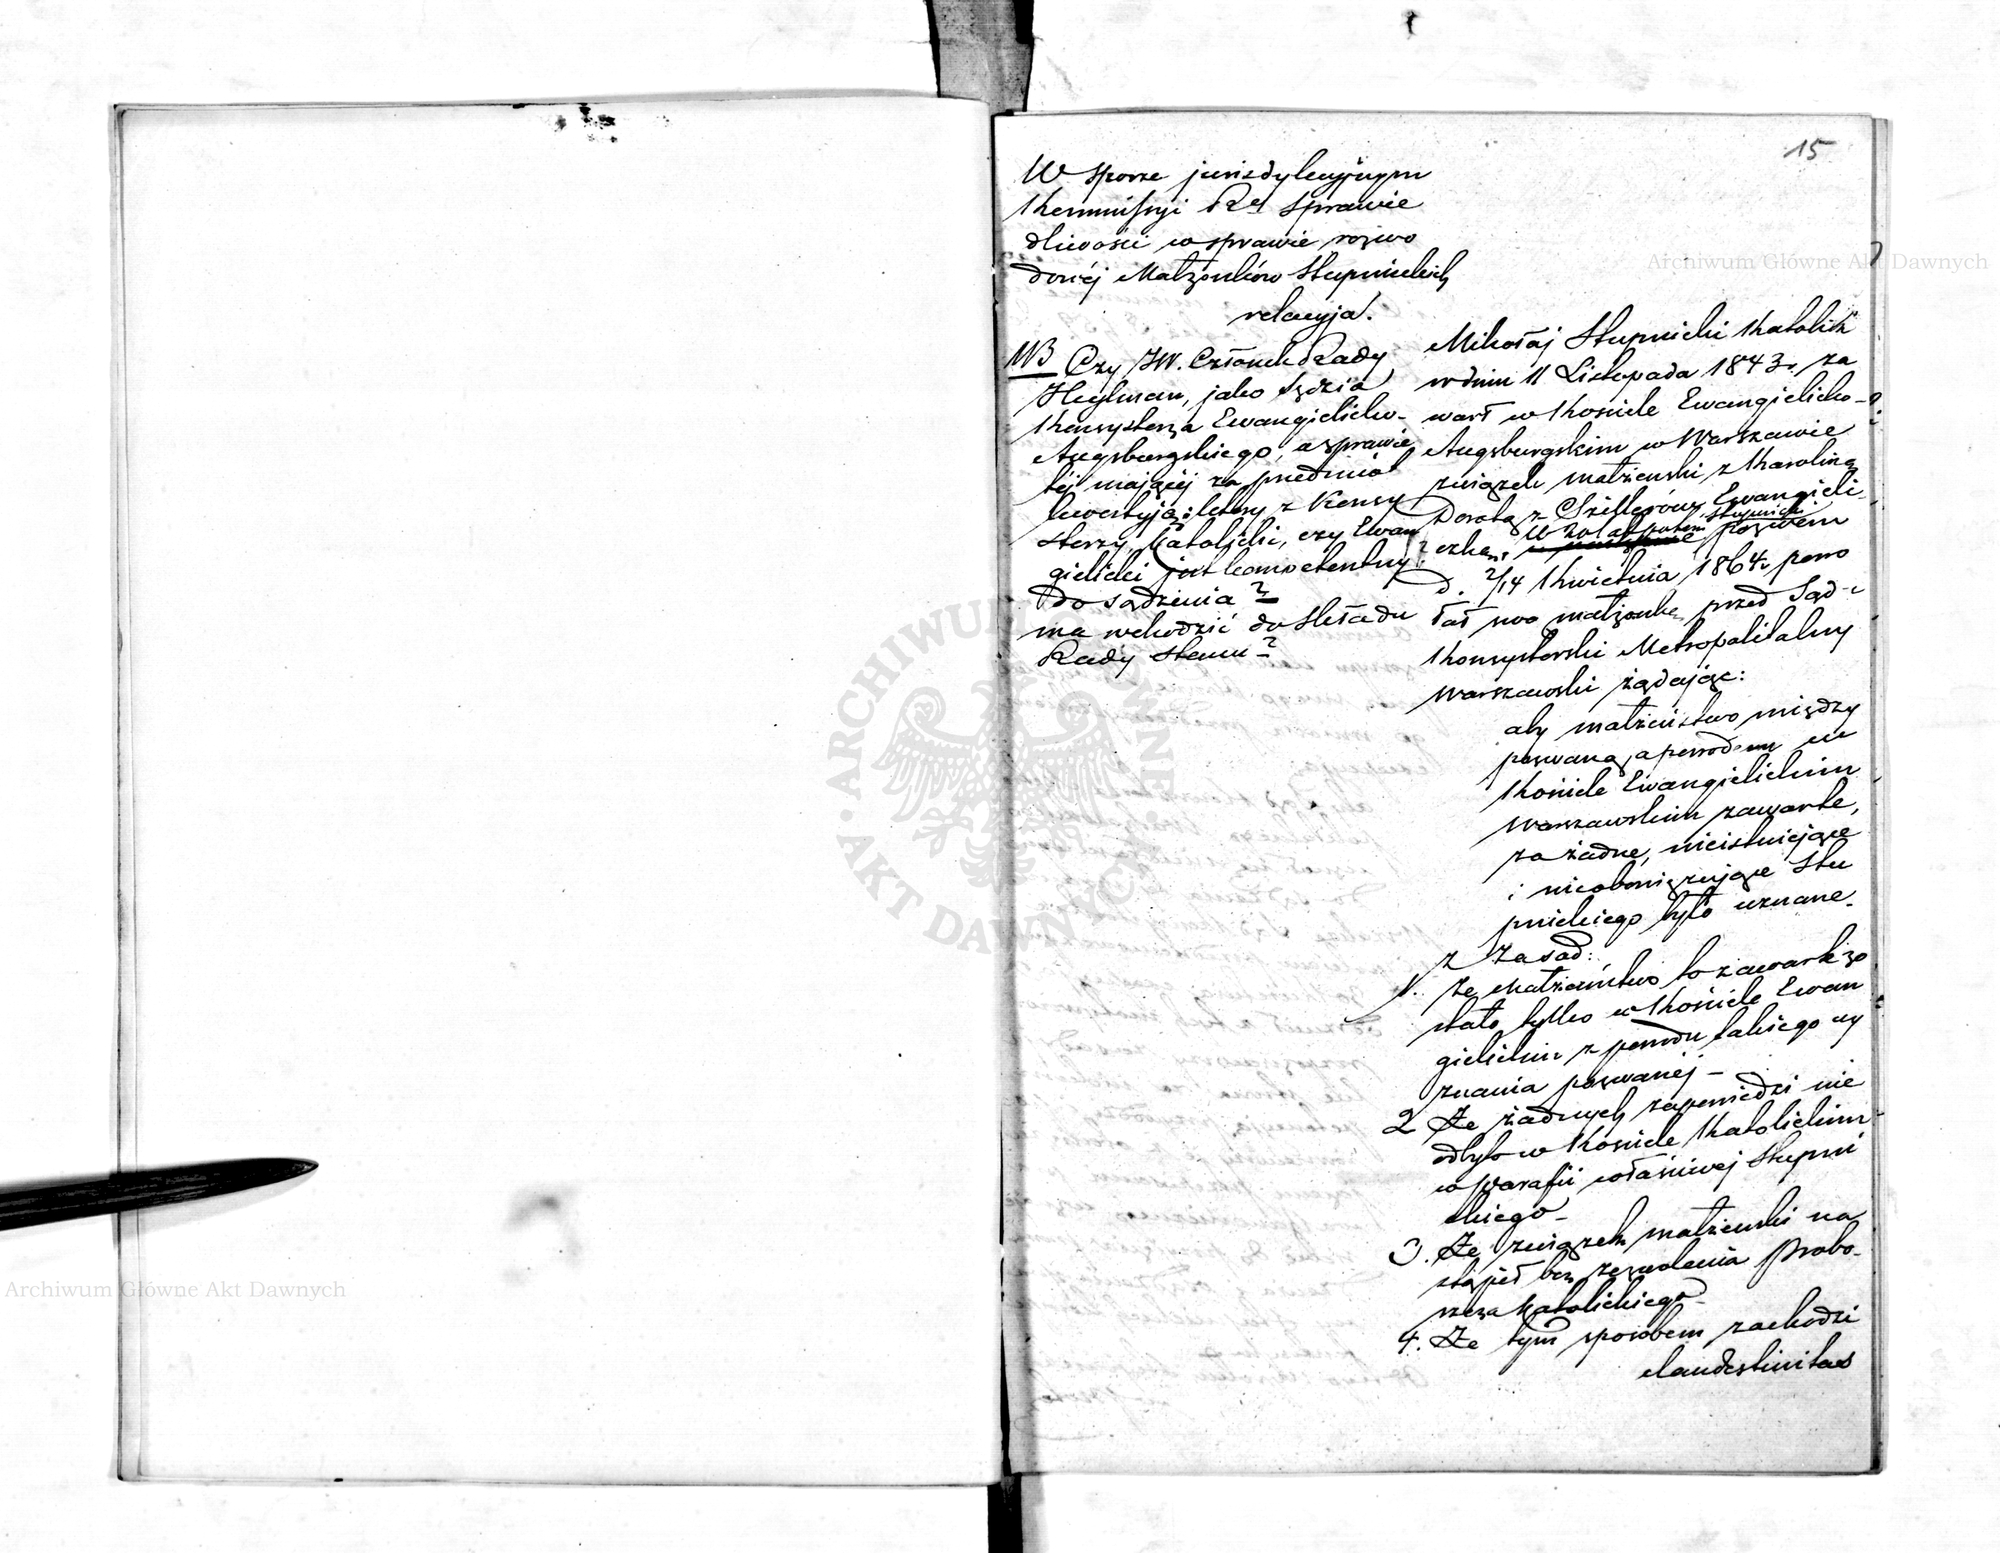 15
W sporze jurisdykcyjnym
Kommissyi Rzą Sprawie
dliwości w sprawie rozwo
dowéj Małżonków Słupnickich
relacyja.
NB Czy JW. Członek Rady
Heylman, jako Sędzia
Konsystorza Ewangielicko-
Augsburgskiego, a sprawie
téj mającéj za przedmiot
kwestyją: który z Konsy
storzy, Katolicki, czy Ewan
gielicki jest kompetentny
do sądzenia?
ma wchodzić do składu
Rady Stanu?
Mikołaj Słupnicki Katolik
w dniu 11 Listopada 1843 r. za
warł w Kościele Ewangielicko-
Augsburgskim w Warszawie
związek małżeński z Karoliną
Dorotą z Ewangieli
czką. W 20 lat potem Słupnicki pozwem
d. 2/14 Kwietnia 1864 r. powo
łał swo małżonkę przed Sąd
Konsystorski Metropolitalny
Warszawski żądając:
aby małżeństwo między
pozwaną a powodem w
Kościele Ewangielickim
Warszawskim zawarte,
za żadne, nieistniejące
i nieobowiązujące Słu
pnickiego było uznane.
z zasad:
1. że Małżeństwo to zawarte zo
stało tylko w Kościele Ewan
gielickim z powodu takiego wy
znania pozwanéj –
2 Że żadnych zapowiedzi nie
odbyto w Kościele Katolickim
w parafii właściwéj Słupni
ckiego –
3. Że związek małżeński na
stąpił bez zezwolenia Probo-
szcza Katolickiego –
4. Że tym sposobem zachodzi
clandestinitas
Archiwum Główne Akt Dawnych
Archiwum Główne Akt Dawnych
ARCHIWUM GŁÓWNE · AKT DAWNYCH ·